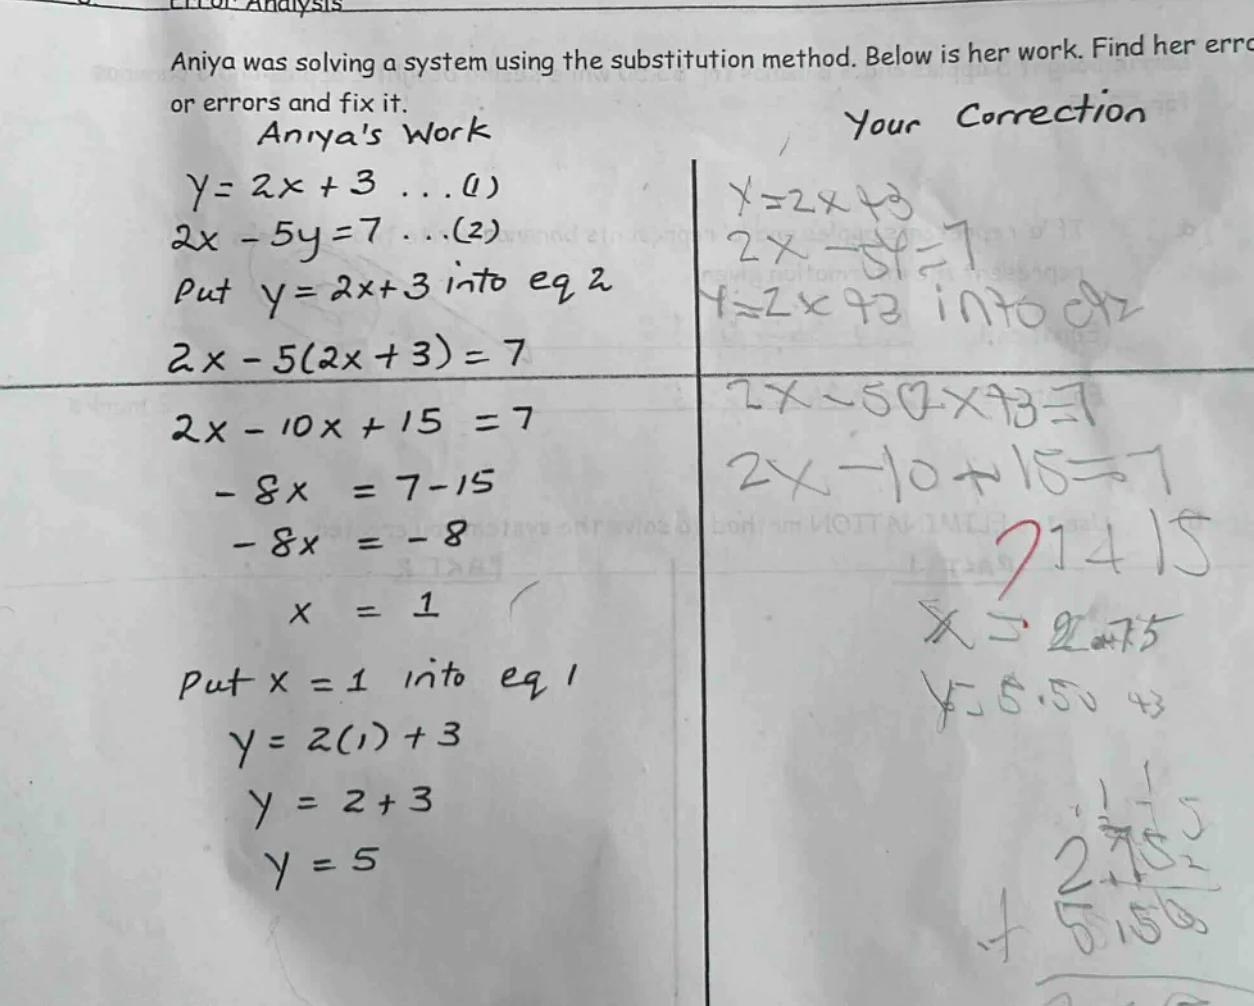 Error Analysis
Aniya was solving a system using the substitution method. Below is her erro
or errors and fix it.
Aniya's Work
y = 2x + 3 ...(1)
2x - 5y = 7 ...(2)
Put y = 2x+3 into eq 2
2x - 5(2x + 3) = 7
2x - 10x + 15 = 7
- 8x = 7-15
- 8x = - 8
x = 1
Put x = 1 into eq 1
y = 2(1) + 3
y = 2 + 3
y = 5
Your Correction
Y=2x+3
2x -5y=7
Y=2x+3 into
2x-5(2x+3=7
2x-10+15=7
7+15
x = 2.75
y=5.50 +3
2.75
+ 5.50